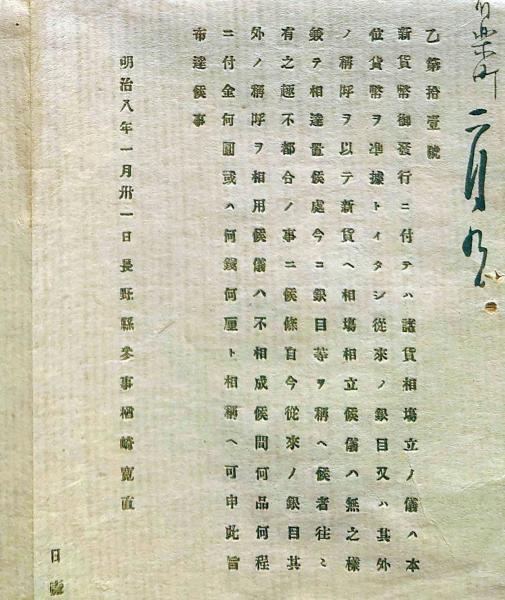 二月九
乙第拾壹號
新貨幣御發行ニ付テハ諸貨相塲立ノ儀ハ本
位貨幣ヲ准據トイタシ從來ノ銀目又ハ其外
ノ稱呼ヲ以テ新貨ヘ相塲相立候儀ハ無之樣
兼テ相達置候處今ニ銀目等ヲ稱ヘ候者往々
有之趣不都合ノ事ニ候條自今從來ノ銀目其
外ノ稱呼ヲ相用候儀ハ不相成候間何品何程
ニ付金何圓或ハ何錢何厘ト相稱ヘ可申此旨
布達候事
明治八年一月卅一日長野縣參事楢﨑寛直